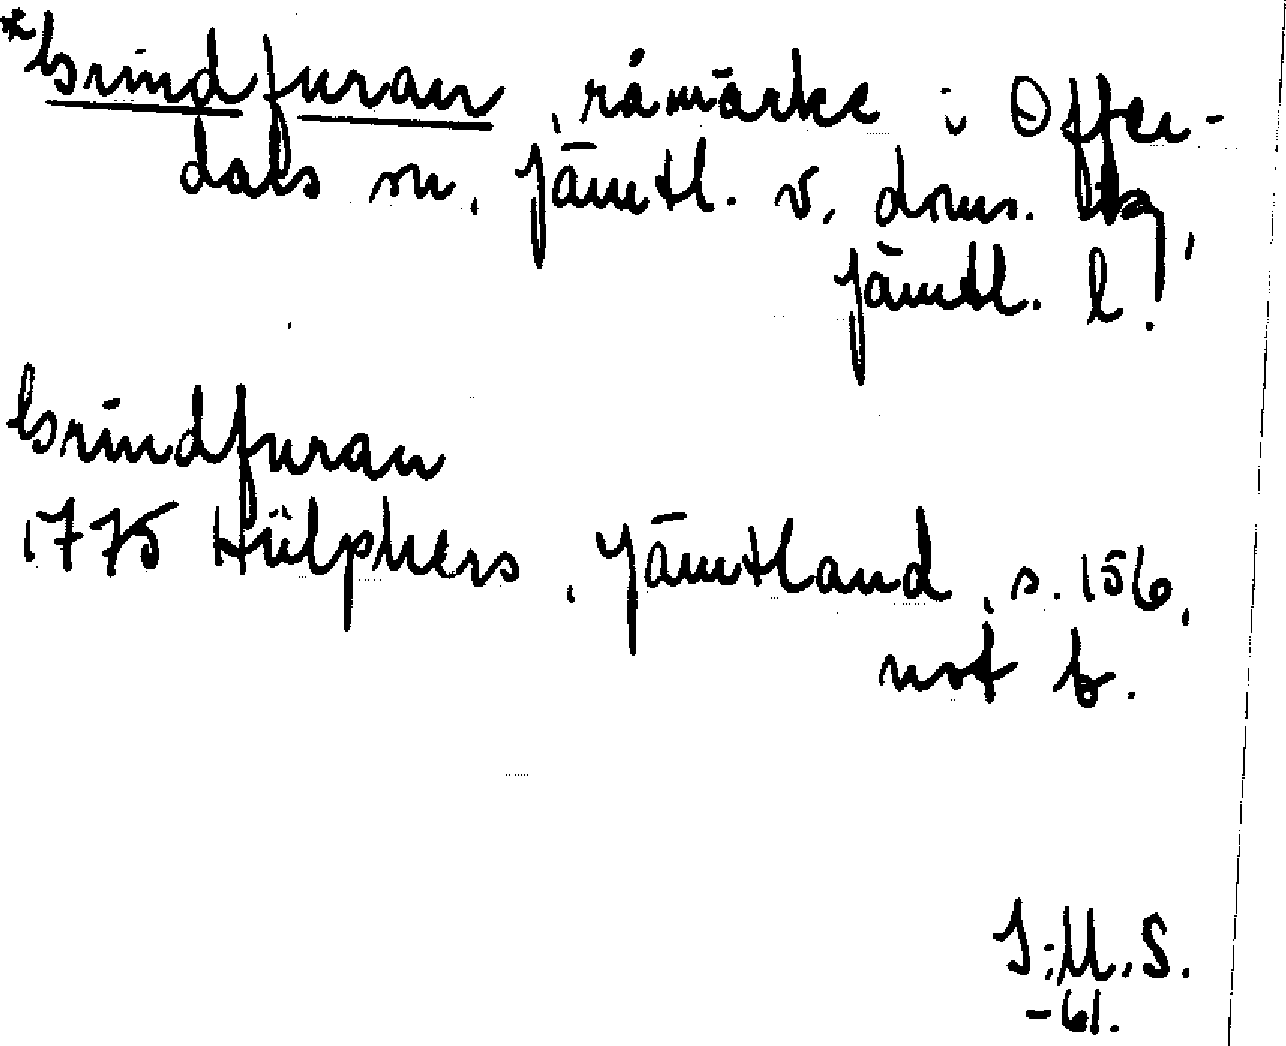 *Grindfuran, råmärke i Offer-
dals sn, Jämtl. v. doms. tg,
Jämtl. l.
Grindfuran
1775 Hülphers, Jämtland, s. 156,
not b.
I:M.S.
-61.